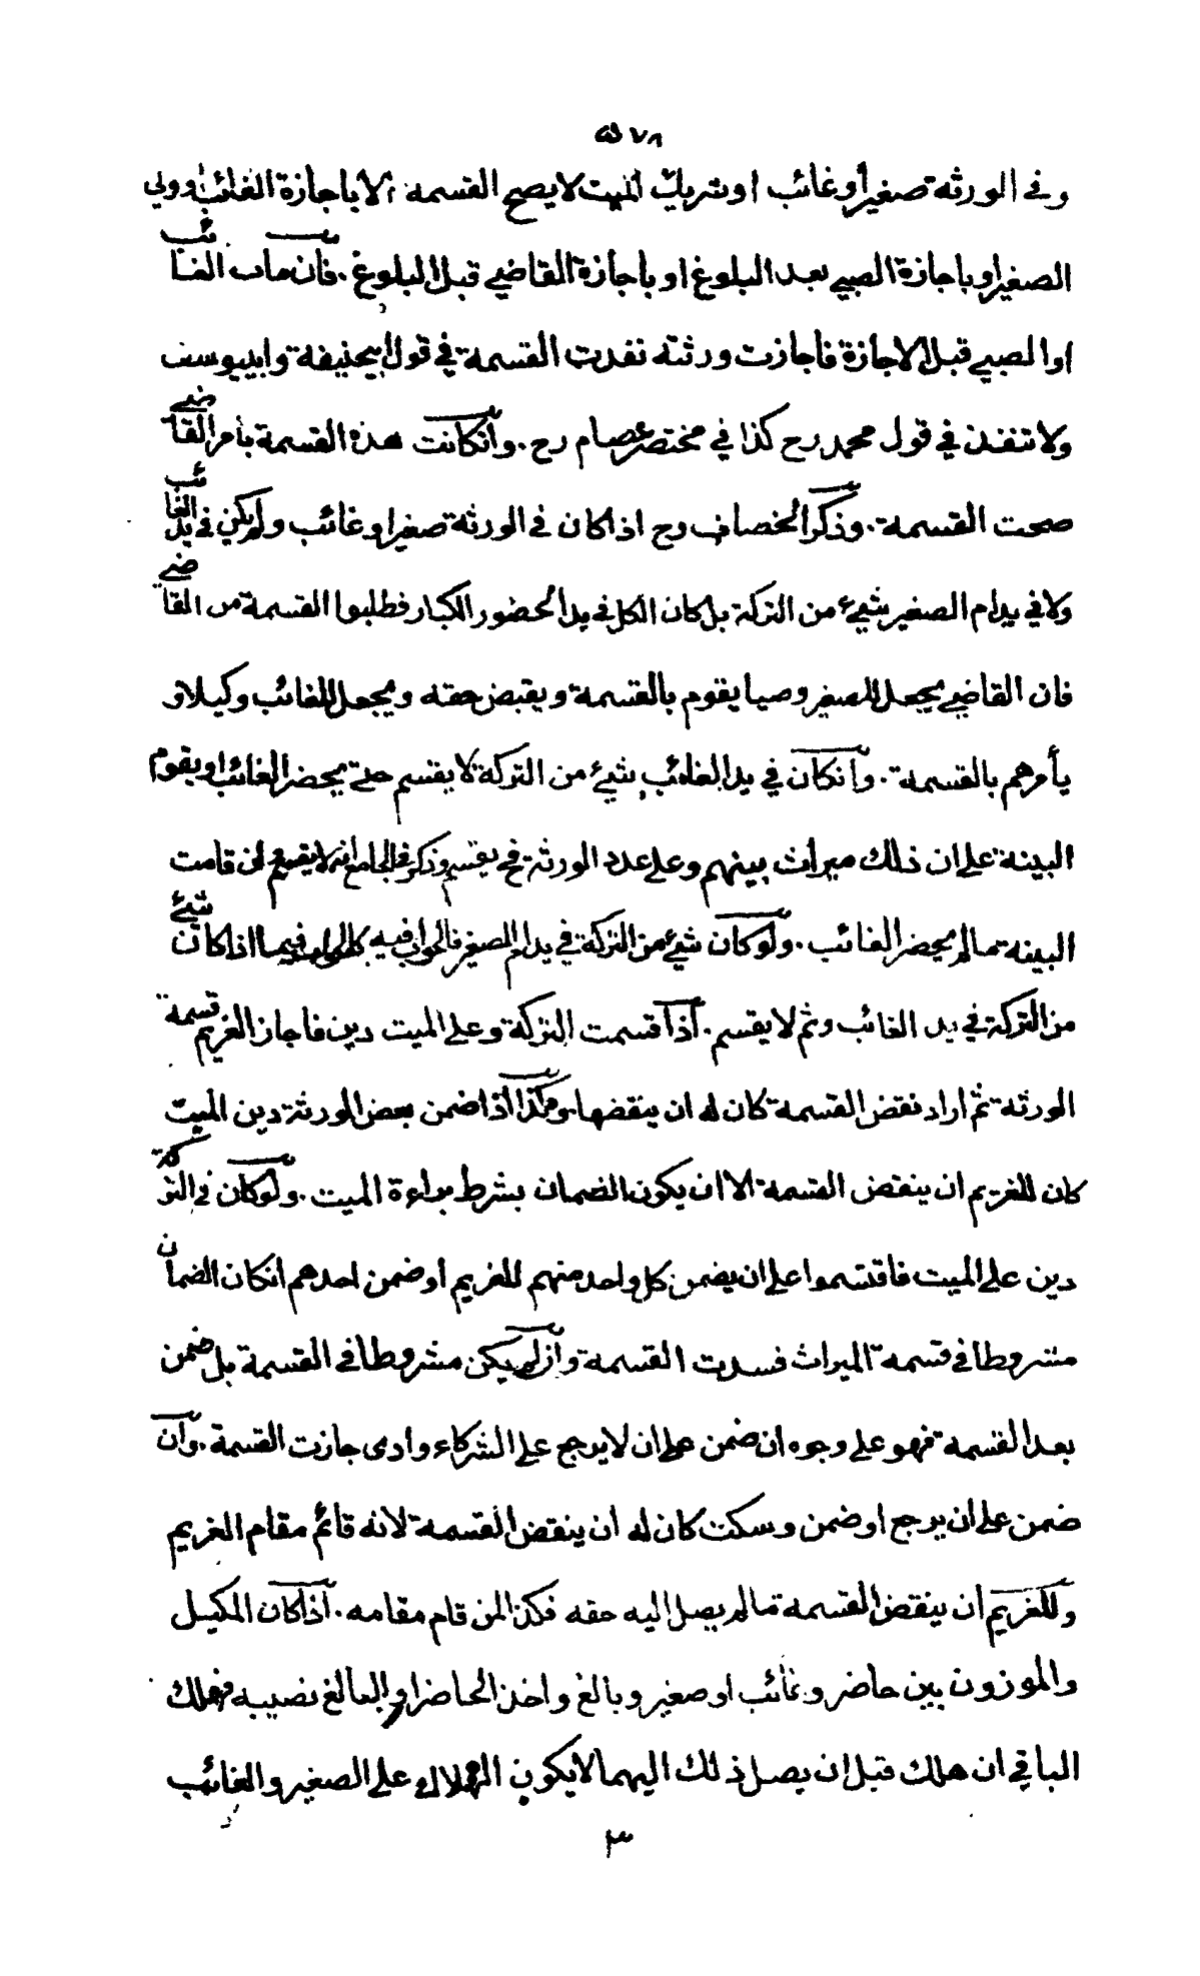 ٥٧٨
وفي الورثة صغيرا أو غائب او شريك الميت لا يصح القسمة الا باجازة الغائب او ولي
الصغير او باجازة الصبي بعد البلوغ او باجازة القاضي قبل البلوغ . فان مات الغائب
او الصبي قبل الاجازة فاجازت ورثته نفذت القسمة في قول ابيحنيفة وابييوسف
ولا تنفذ في قول محمد رح كذا في مختصر عصام رح . وانكانت هذه القسمة بأمر القاضي
صحت القسمة . وذكر الخصاف رح اذا كان في الورثة صغير او غائب ولم يكن في يد الغائب
ولا في يد ام الصغير شيء من التركة بل كان الكل في يد الحضور الكبار فطلبوا القسمة من القاضي
فان القاضي يجعل للصغير وصيا يقوم بالقسمة ويقبض حقه ويجعل للغائب وكيلا و
يأمرهم بالقسمة . وانكان في يد الغائب شيئ من التركة لا يقسم حتى يحضر الغائب او يقوم
البينة على ان ذلك ميراث بينهم وعلى عدد الورثة فح يقسم وذكر في الجامع انه لا يقسم ان قامت
البينة ما لم يحضر الغائب . ولو كان شيئ من التركة في يد ام الصغير فالجواب فيه كالجواب فيما اذا كان شيئ
من التركة في يد الغائب وثم لا يقسم . اذا قسمت التركة وعلى الميت دين فاجاز الغريم قسمة
الورثة ثم اراد نقض القسمة كان له ان ينقضها . وهكذا اذا ضمن بعض الورثة دين الميت
كان للغريم ان ينقض القسمة الا ان يكون الضمان بشرط براءة الميت . ولو كان في التركة
دين على الميت فاقتسموا على ان يضمن كل واحد منهم للغريم او ضمن احدهم انكان الضمان
مشروطا في قسمة الميراث فسدت القسمة وان لم يكن مشروطا في القسمة بل ضمن
بعد القسمة فهو على وجوه ان ضمن على ان لا يرجع على الشركاء وادى جازت القسمة . وان
ضمن على ان يرجع او ضمن وسكت كان له ان ينقض القسمة لانه قائم مقام الغريم
وللغريم ان ينقض القسمة ما لم يصل اليه حقه فكذا لمن قام مقامه . اذا كان المكيل
والموزون بين حاضر وغائب او صغير وبالغ واخذ الحاضر او البالغ نصيبه فهلك
الباقي ان هلك قبل ان يصل ذلك اليهما لا يكون الهلاك على الصغير والغائب
٣